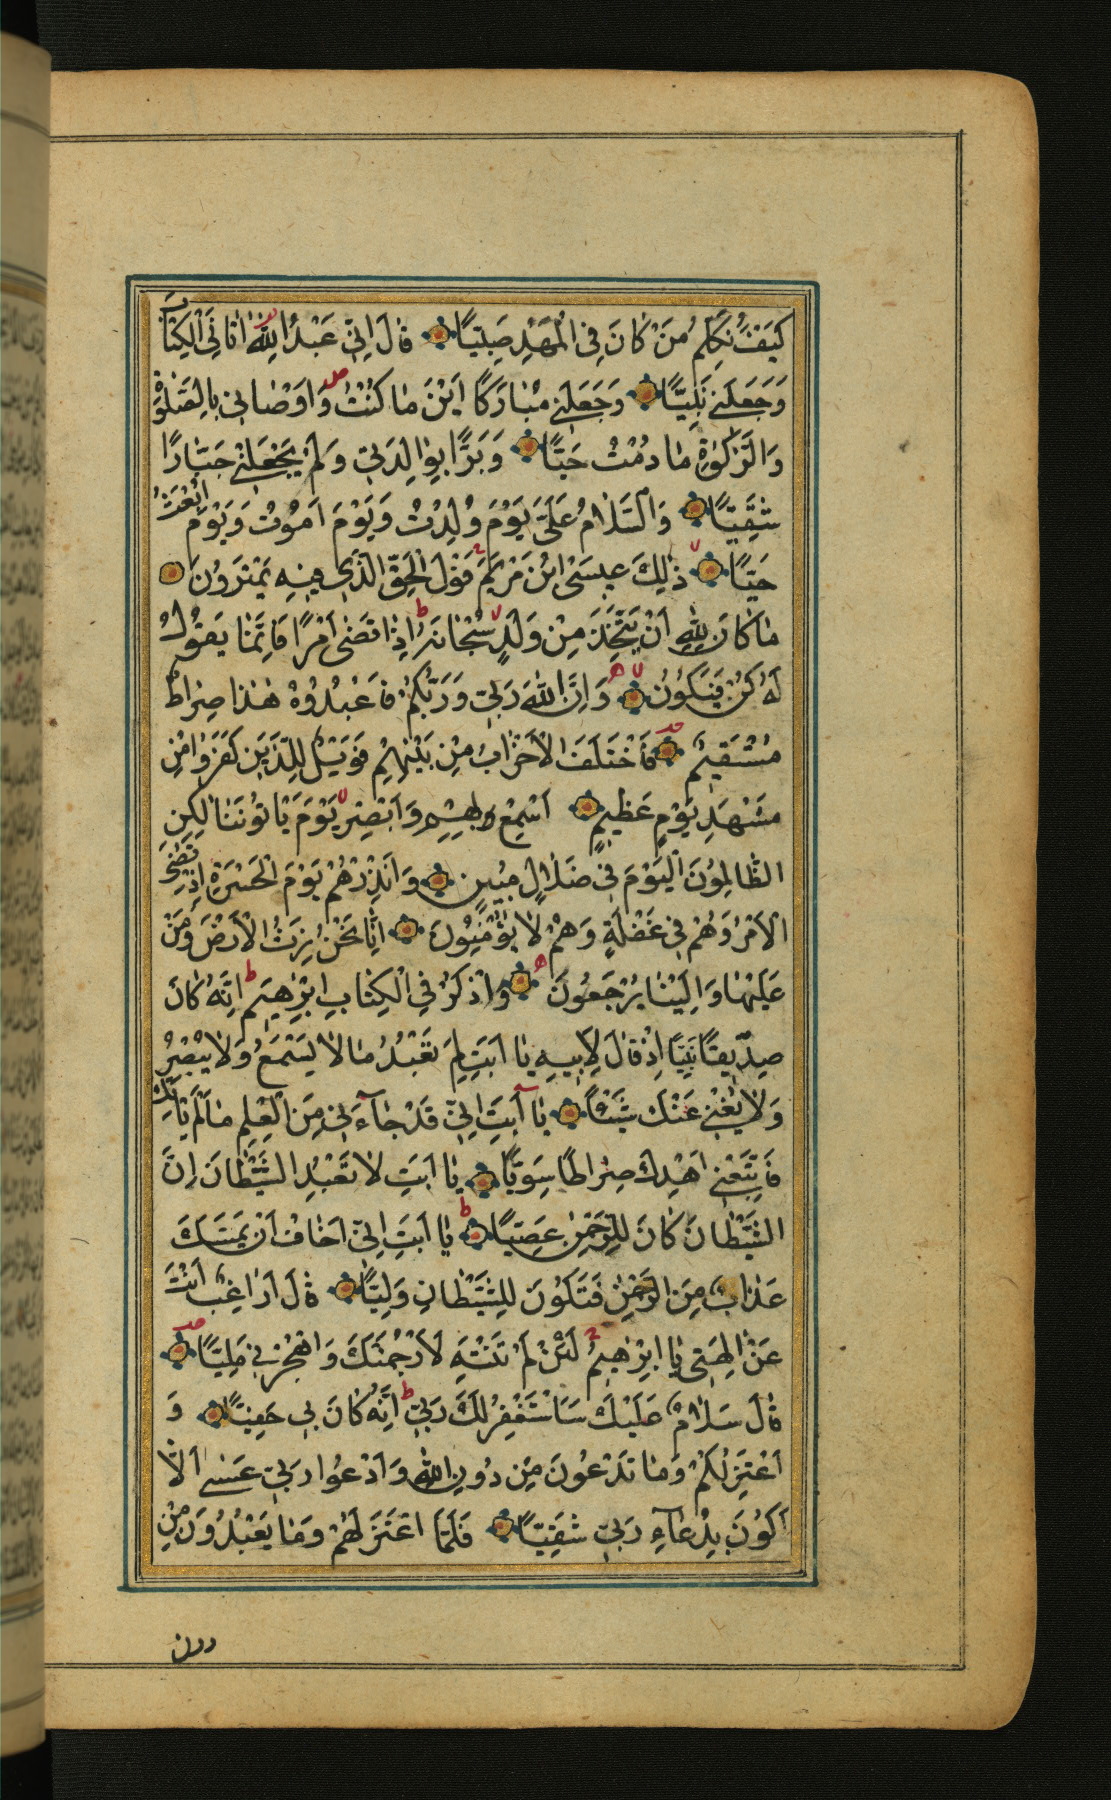 كَيْفَ نُكَلِّمُ مَنْ كَانَ فِي الْمَهْدِ صَبِيًّا قَالَ اِنّي عَبْدُ اللهِ اٰتَانِيَ الْكِتَابَ
وَجَعَلَني نَبِيًّا وَجَعَلَني مُبَارَكًا اَيْنَ مَا كُنْتُ وَاَوْصَاني بِالصَّلٰوةِ
وَالزَّكٰوةِ مَا دُمْتُ حَيًّا وَبَرًّا بِوَالِدَتي وَلَمْ يَجْعَلْني جَبَّارًا
شَقِيًّا وَالسَّلَامُ عَلَيَّ يَوْمَ وُلِدْتُ وَيَوْمَ اَمُوتُ وَيَوْمَ اُبْعَثُ
حَيًّا ذٰلِكَ عيسَى ابْنُ مَرْيَمَ قَوْلَ الْحَقِّ الَّذي فيهِ يَمْتَرُونَ
مَا كَانَ لِلّٰهِ اَنْ يَتَّخِذَ مِنْ وَلَدٍ سُبْحَانَهُ اِذَا قَضٰى اَمْرًا فَاِنَّمَا يَقُولُ
لَهُ كُنْ فَيَكُونُ وَاِنَّ اللهَ رَبّي وَرَبُّكُمْ فَاعْبُدُوهُ هٰذَا صِرَاطٌ
مُسْتَقيمٌ فَاخْتَلَفَ الْاَحْزَابُ مِنْ بَيْنِهِمْ فَوَيْلٌ لِلَّذينَ كَفَرُوا مِنْ
مَشْهَدِ يَوْمٍ عَظيمٍ اَسْمِعْ بِهِمْ وَاَبْصِرْ يَوْمَ يَأْتُونَنَا لٰكِنِ
الظَّالِمُونَ الْيَوْمَ في ضَلَالٍ مُبينٍ وَاَنْذِرْهُمْ يَوْمَ الْحَسْرَةِ اِذْ قُضِيَ
الْاَمْرُ وَهُمْ في غَفْلَةٍ وَهُمْ لَا يُؤْمِنُونَ اِنَّا نَحْنُ نَرِثُ الْاَرْضَ وَمَنْ
عَلَيْهَا وَاِلَيْنَا يُرْجَعُونَ وَاذْكُرْ فِي الْكِتَابِ اِبْرٰهيمَ اِنَّهُ كَانَ
صِدّيقًا نَبِيًّا اِذْ قَالَ لِاَبيهِ يَا اَبَتِ لِمَ تَعْبُدُ مَا لَا يَسْمَعُ وَلَا يُبْصِرُ
وَلَا يُغْني عَنْكَ شَيْئًا يَا اَبَتِ اِنّي قَدْ جَاءَني مِنَ الْعِلْمِ مَا لَمْ يَأْتِكَ
فَاتَّبِعْني اَهْدِكَ صِرَاطًا سَوِيًّا يَا اَبَتِ لَا تَعْبُدِ الشَّيْطَانَ اِنَّ
الشَّيْطَانَ كَانَ لِلرَّحْمٰنِ عَصِيًّا يَا اَبَتِ اِنّي اَخَافُ اَنْ يَمَسَّكَ
عَذَابٌ مِنَ الرَّحْمٰنِ فَتَكُونَ لِلشَّيْطَانِ وَلِيًّا قَالَ اَرَاغِبٌ اَنْتَ
عَنْ اٰلِهَتي يَا اِبْرٰهيمُ لَئِنْ لَمْ تَنْتَهِ لَاَرْجُمَنَّكَ وَاهْجُرْني مَلِيًّا
قَالَ سَلَامٌ عَلَيْكَ سَاَسْتَغْفِرُ لَكَ رَبّي اِنَّهُ كَانَ بي حَفِيًّا وَ
اَعْتَزِلُكُمْ وَمَا تَدْعُونَ مِنْ دُونِ اللهِ وَاَدْعُوا رَبّي عَسٰى اَلَّا
اَكُونَ بِدُعَاءِ رَبّي شَقِيًّا فَلَمَّا اعْتَزَلَهُمْ وَمَا يَعْبُدُونَ مِنْ
دون